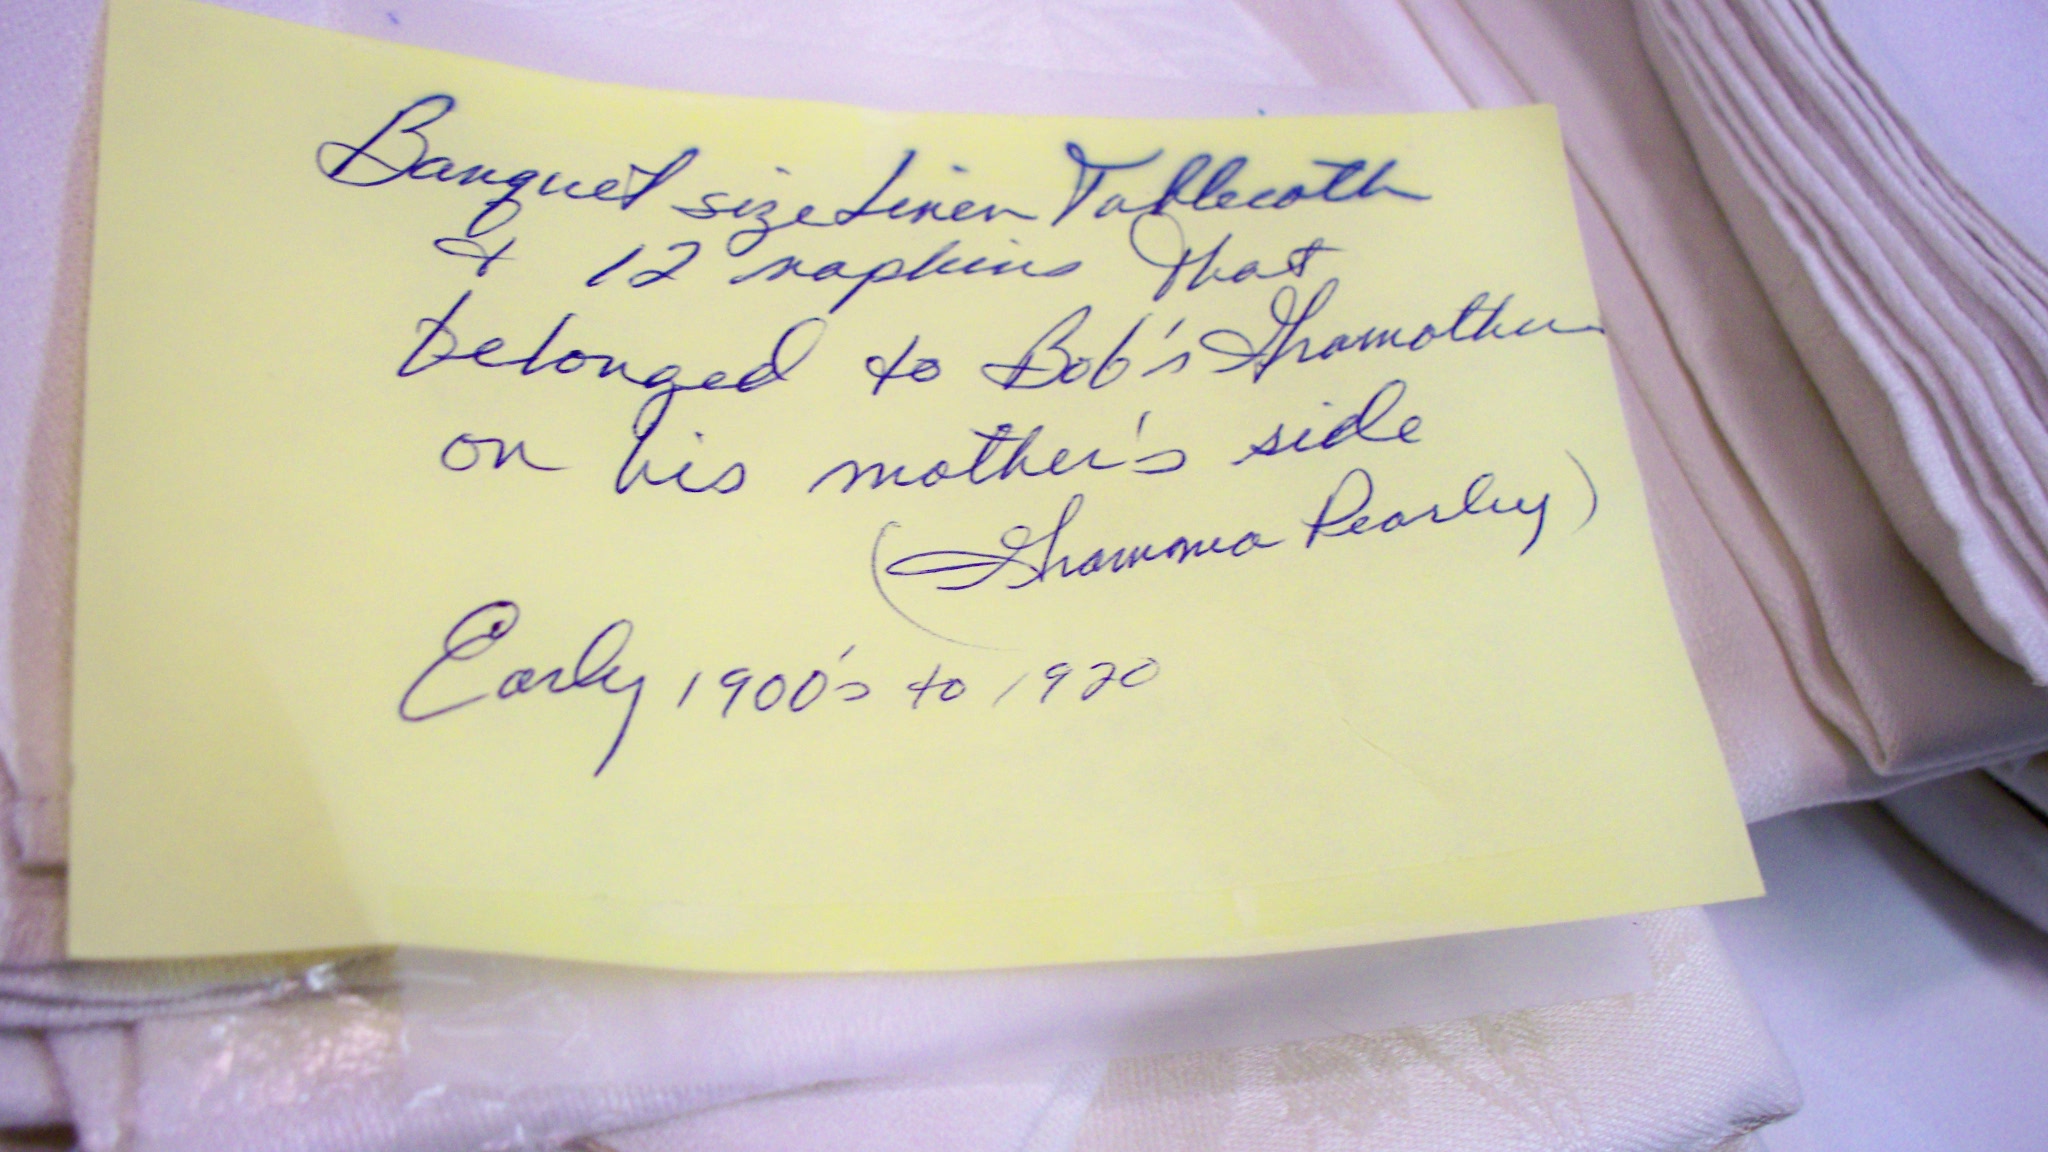 Banquet size Linen Tablecoth
& 12 napkins that
belonged to Bob's Gramother
on his mother's side
(Gramma Pearley)
Early 1900's to 1920